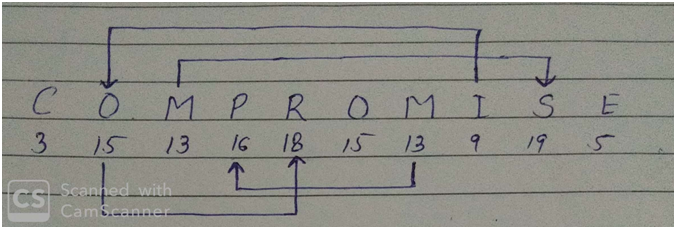 C O M P R O M I S E
3 15 13 16 18 15 13 9 19 5
CS Scanned with
CamScanner